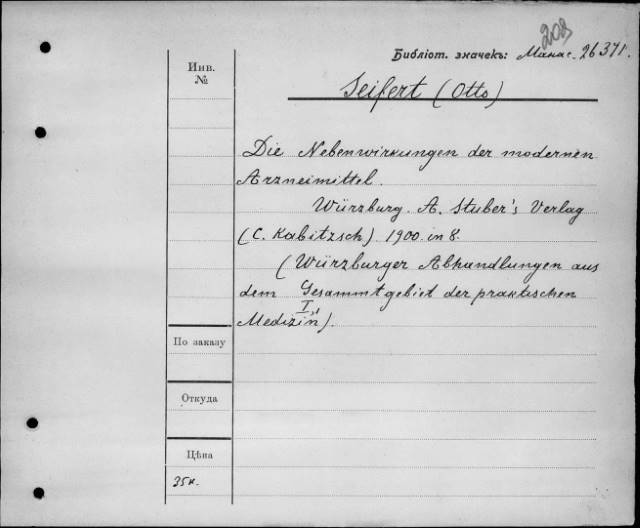 203
Библіот. значекъ: Манас. 26371.
Инв.
№
Seifert (Otto)
Die Nebenwirkungen der modernen
Arzneimittel.
Würzburg. A. Stuber's Verlag
(C. Kabitzsch) 1900. in 8.
(Würzburger Abhandlungen aus
dem Gesammtgebiet der praktischen
Medizin).
I,1
По заказу
Откуда
Цѣна
35к.